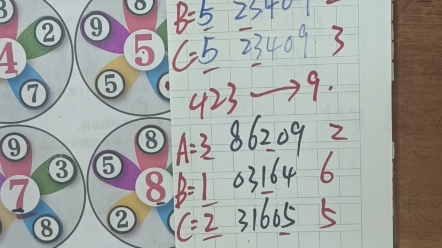 B=5 23409
C=5 23409 3
423 → 9.
A=3 86209 2
B=1 03164 6
C=2 31605 5
2
9
5
4
7
5
9
3
7
8
8
5
8
2